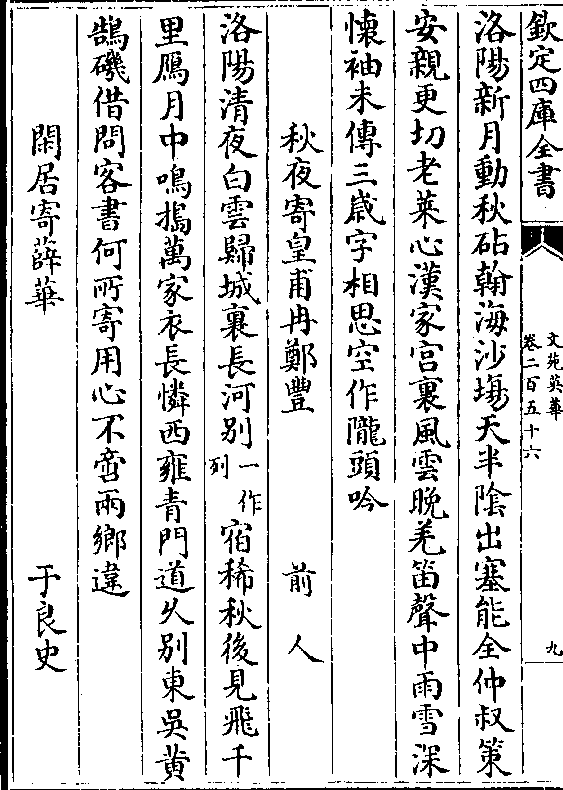 欽定四庫全書
文苑英華
卷二百五十六
九
洛陽新月動秋砧瀚海沙塲天半隂出塞能全仲叔策
安親更切老萊心漢家宫裏風雲晚羌笛聲中雨雪深
懐袖未傳三歳字相思空作隴頭吟
秋夜寄皇甫冉鄭豐 前人
洛陽清夜白雲歸城裏長河别一作列宿稀秋後見飛千
里鴈月中鳴擣萬家衣長憐西雍青門道乆别東吳黄
鵠磯借問客書何所寄用心不啻兩鄉違
閑居寄薛華 于良史